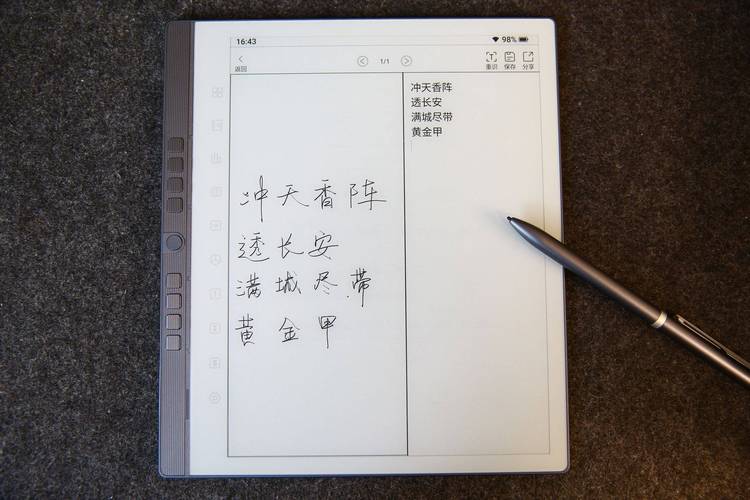 16:43
98%
返回
1/1
重识 保存 分享
冲天香阵
透长安
满城尽带
黄金甲
冲天香阵
透长安
满城尽带
黄金甲